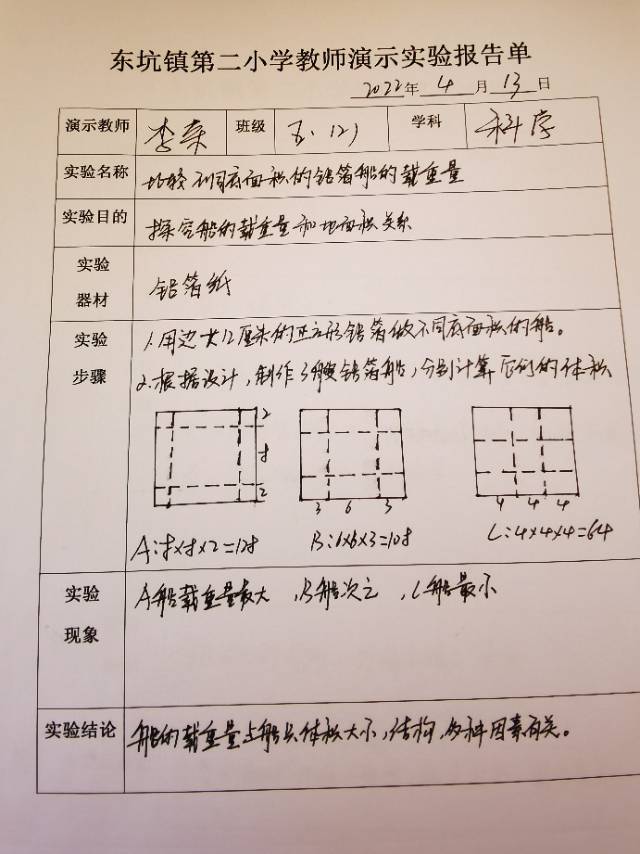 东坑镇第二小学教师演示实验报告单
2022年 4 月 13 日
演示教师 李 班级 五.(2) 学科 科学
实验名称 比较不同底面积的铝箔船的载重量
实验目的 探究船的载重量和地面积关系
实验
器材 铝箔纸
实验 1.用边长12厘米的正方形铝箔做不同底面积的船。
步骤 2.根据设计,制作3艘铝箔船,分别计算它们的体积
2
8
2
3 6 3
4 4 4
A:8×8×2=128 B:6×6×3=108 C:4×4×4=64
实验 A船载重量最大,B船次之,C船最小
现象
实验结论 船的载重量与船只体积大小,结构,多种因素有关。